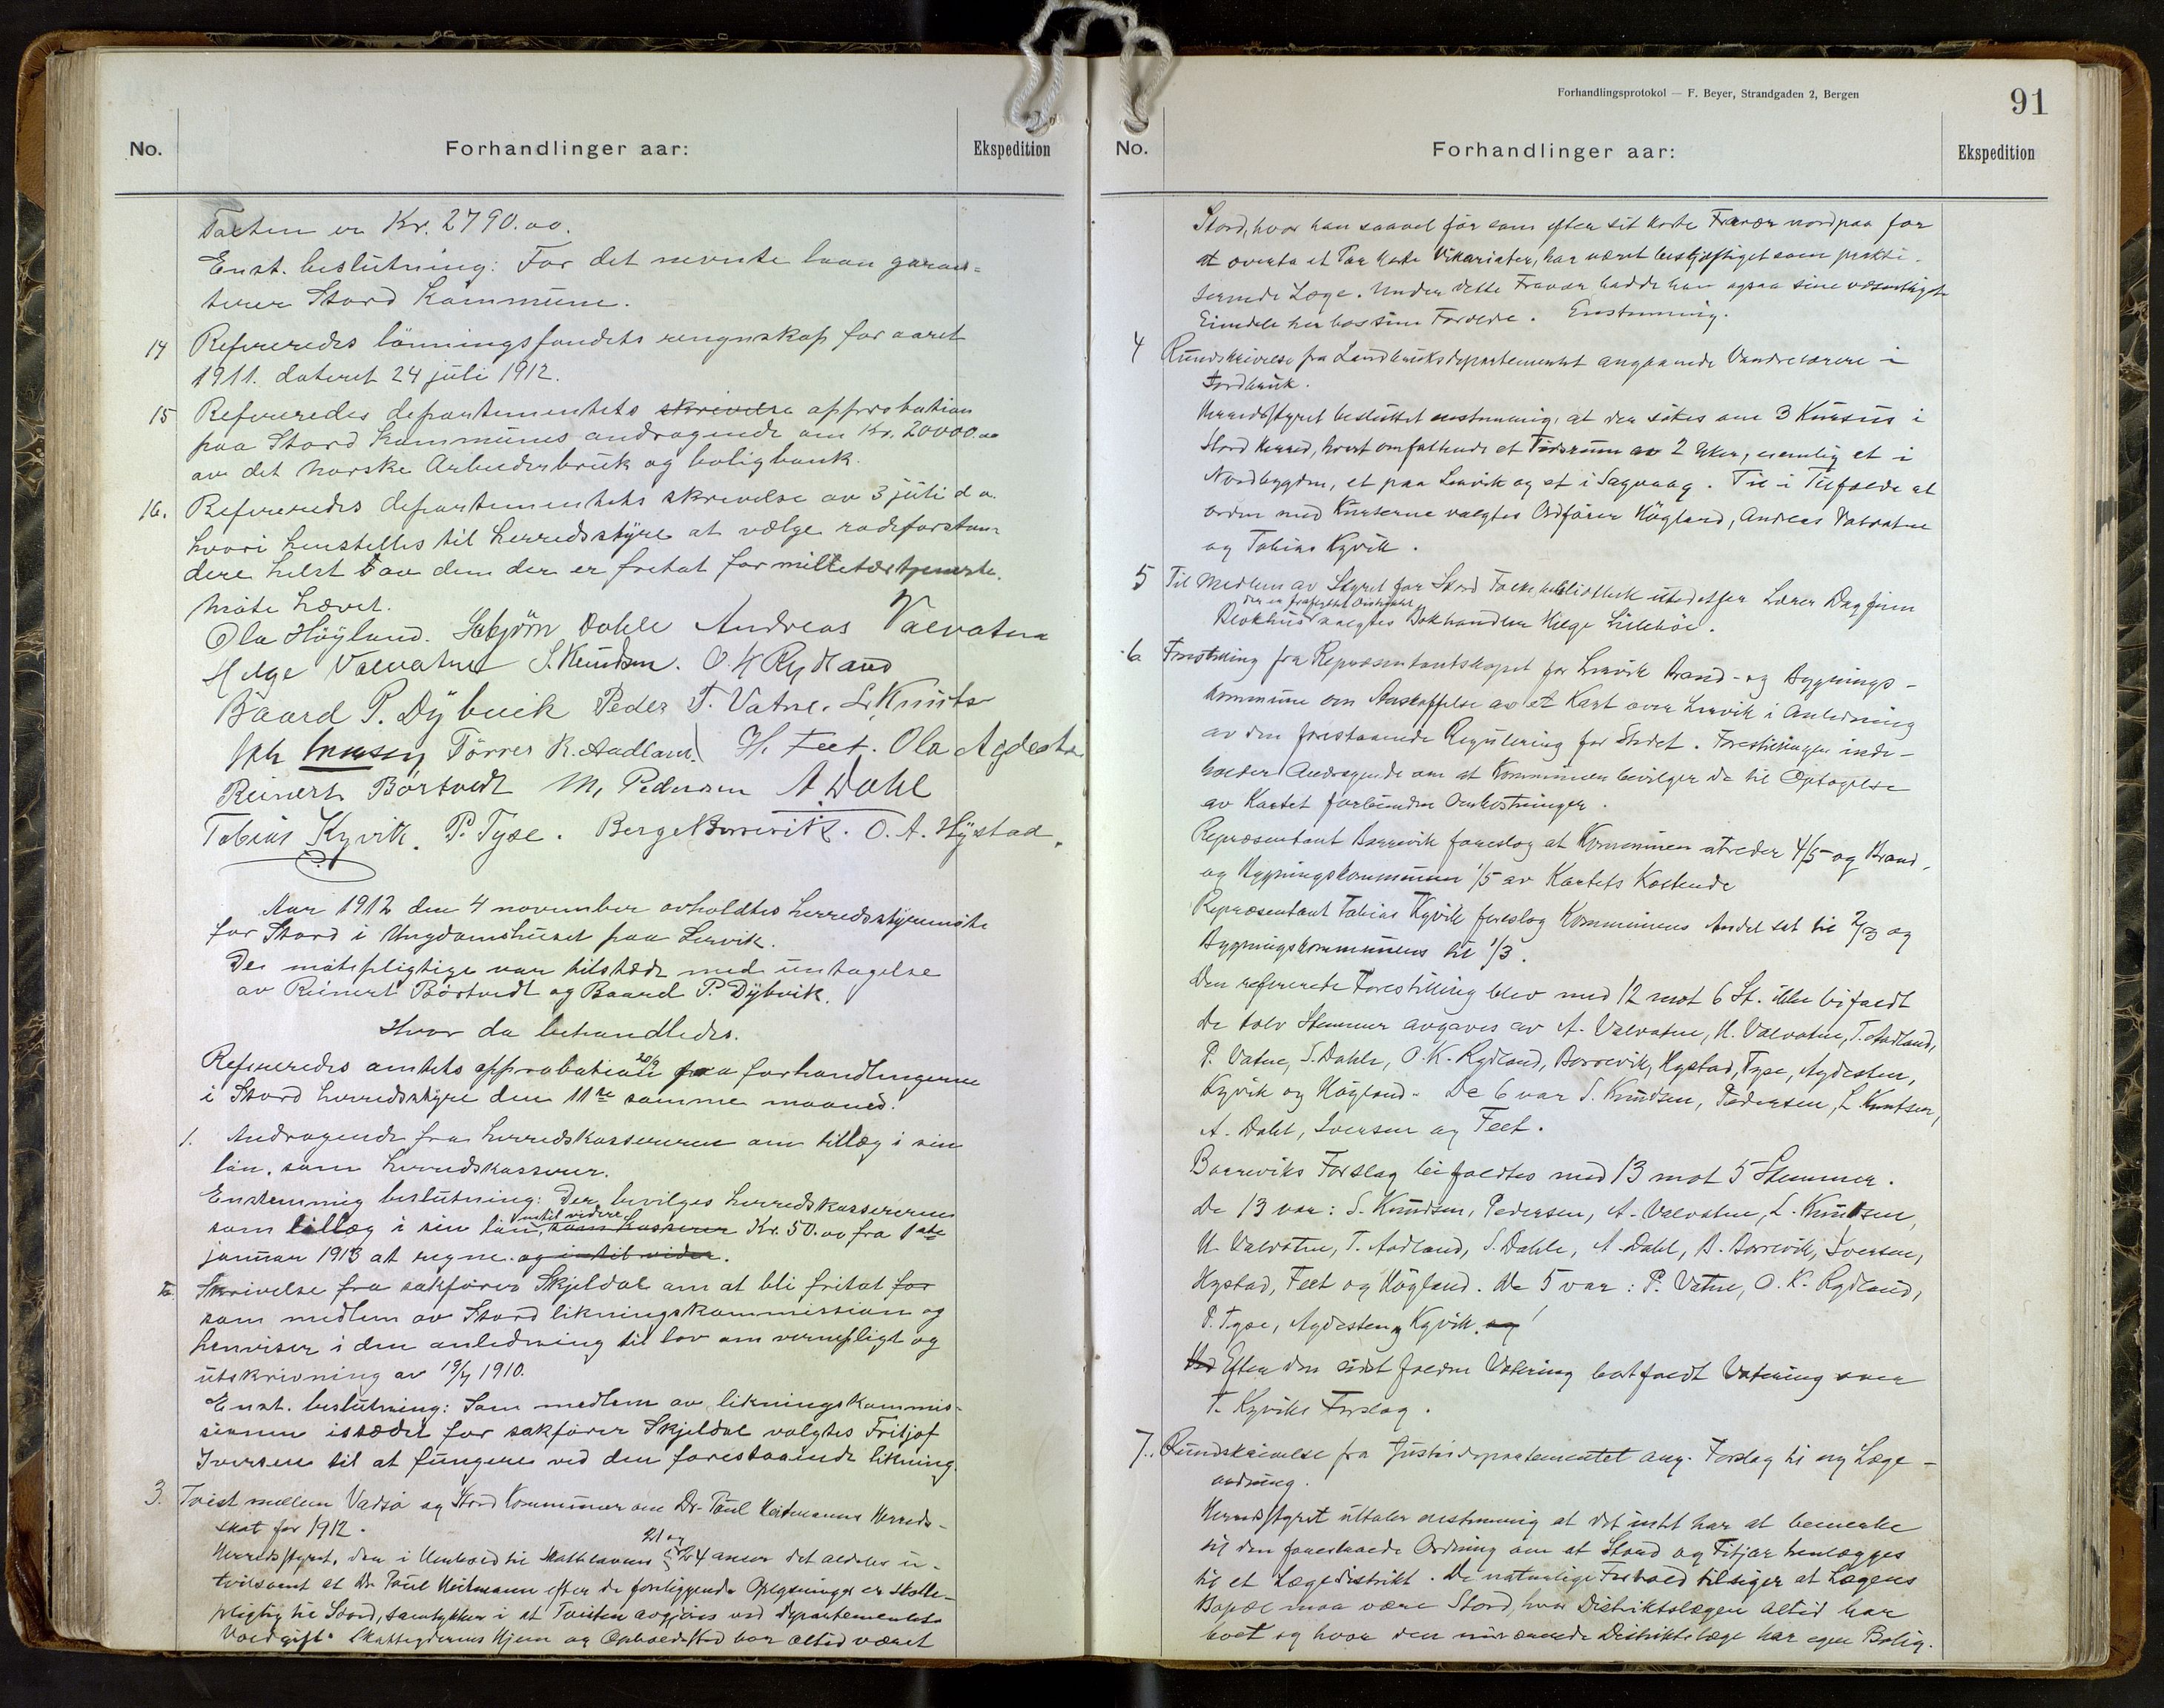 No.
Forhandlinger aar:
Ekspedition
Taksten er Kr. 2790.00.
Enst. beslutning: For det nevnte laan garan=
terer Stord kommune.
14 Refereredes lönningsfondets rengnskap for aaret
1911. dateret 24 juli 1912.
15 Refereredes departementets skrivelse approbation
paa Stord kommunes andragende om Kr. 20000.00
av det norske Arbeiderbruk og boligbank.
16. Refereredes departementets skrivelse av 3 juli d.a.
hvori henstilles til herredsstyre at vælge rodeforstan-
dere helst av dem der er fritat for militærtjeneste.
Möte hævet.
Ola Höyland. Asbjörn Dahle Andreas Valvatna
Helge Valvatne S. Knudsen. O. K. Rydland
Baard P. Dybvik Peder T. Vatne. L. Knuts
Iversen Törres K. Aadland. H. Feet. Ola Agdesten
Reinert Börtvedt M. Pedersen A. Dahl
Tobias Kyvik. P. Tyse. Berge Borrevik. O. A. Hystad.
Aar 1912 den 4 november avholdtes herredsstyremöte
for Stord i Ungdomshuset paa Lervik.
De mötepligtige var tilstæde med untagelse
av Reinert Börtvedt og Baard P. Dybvik.
Hvor da behandledes.
Refereredes amtets approbation 20/9 paa forhandlingerne
i Stord herredsstyre den 11te samme maaned.
1. Andragende fra herredskassereren om tillæg i sin
lön. som herredskasserer.
Enstemmig beslutning: Der bevilges herredskassereren
som tillæg i sin lön, intil videre som kasserer Kr. 50.00 fra 1ste
januar 1913 at regne. og intil videre.
2. Skrivelse fra sakförer Skjeldal om at bli fritat for
som medlem av Stord likningskommission og
henviser i den anledning til lov om vernepligt og
utskrivning av 19/7 1910.
Enst. beslutning: Som medlem av likningskommis-
sionen istedet for sakförer Skjeldal valgtes Fritjof
Iversen til at fungere ved den forestaaende likning.
3. Tvist mellem Vadsö og Stord Kommuner om Dr. Paul Heitmanns Herreds-
skat for 1912.
Herredsstyret, der i Henhold til Skattelovens § 21 og 24 anser det aldeles u-
tvilsomt at Dr. Paul Heitmann efter de foreliggende Oplysninger er skatte-
pligtig til Stord, samtykker i at Tvisten avgjöres ved Departementets
Voldgift. Skatteyderens Hjem og Opholdssted har altid været
Forhandlingsprotokol — F. Beyer, Strandgaden 2, Bergen
91
No.
Forhandlinger aar:
Ekspedition
Stord, hvor han saavel för som efter sit korte Fravær nordpaa for
at overta et Par korte Vikariater, har været beskjæftiget som prakti-
serende Læge. Under dette Fravær hadde han ogsaa sine væsentligste
Eiendele her hos sine Forældre. Enstemmig.
4 Rundskrivelse fra Landbruksdepartementet angaaende Vandrelærere i
Jordbruk.
Herredsstyret besluttet enstemmig, at der sökes om 3 Kursus i
Stord Herred, hvert omfattende et Tidsrum av 2 Uker, nemlig et i
Nordbygden, et paa Lervik og et i Sagvaag. Til i Tilfælde at
ordne med Kurserne valgtes Ordförer Höyland, Andreas Valvatne
og Tobias Kyvik.
5 Til Medlem av Styret for Stord Folkebibliothek istedetfor Lærer Dagfinn
Blokhus der er fraflyttet Distriktet valgtes Bokhandler Helge Lillebö.
6 Forestilling fra Repræsentantskapet for Lervik Brand- og Bygnings-
kommune om Anskaffelse av et Kart over Lervik i Anledning
av den forestaaende Regulering for Stedet. Forestillingen inde-
holder Andragende om at Kommunen bevilger de til Optagelse
av Kartet forbundne Omkostninger.
Repræsentant Borrevik foreslog at Kommunen utreder 4/5 og Brand-
og Bygningskommunen 1/5 av Kartets Kostende
Repræsentant Tobias Kyvik foreslog Kommunens Andel sat til 2/3 og
Bygningskommunens til 1/3.
Den refererede Forestilling blev med 12 mot 6 St. ikke bifaldt
De tolv Stemmer avgaves av A. Valvatne, H. Valvatne, T. Aadland,
P. Vatne, S. Dahle, O. K. Rydland, Borrevik, Hystad, Tyse, Agdesten,
Kyvik og Höyland. De 6 var S. Knudsen, Pedersen, L. Knutsen,
A. Dahl, Iversen og Feet.
Borreviks Forslag bifaldtes med 13 mot 5 Stemmer.
De 13 var: S. Knudsen, Pedersen, A. Valvatne, L. Knutsen,
H. Valvatne, T. Aadland, S. Dahle, A. Dahl, B. Borrevik, Iversen,
Hystad, Feet og Höyland. De 5 var: P. Vatne, O. K. Rydland,
P. Tyse, Agdesten og Kyvik. og
Ved Efter den sidst faldne Votering bortfaldt Votering over
T. Kyviks Forslag.
7. Rundskrivelse fra Justisdepartementet ang. Forslag til ny Læge-
ordning.
Herredsstyret uttaler enstemmig at det intet har at bemerke
til den foreslaaede Ordning om at Stord og Fitjar henlægges
til et Lægedistrikt. De naturlige Forhold tilsiger at Lægens
Bopæl maa være Stord, hvor Distriktslægen altid har
boet og hvor den nuværende Distriktslæge har egen Bolig.